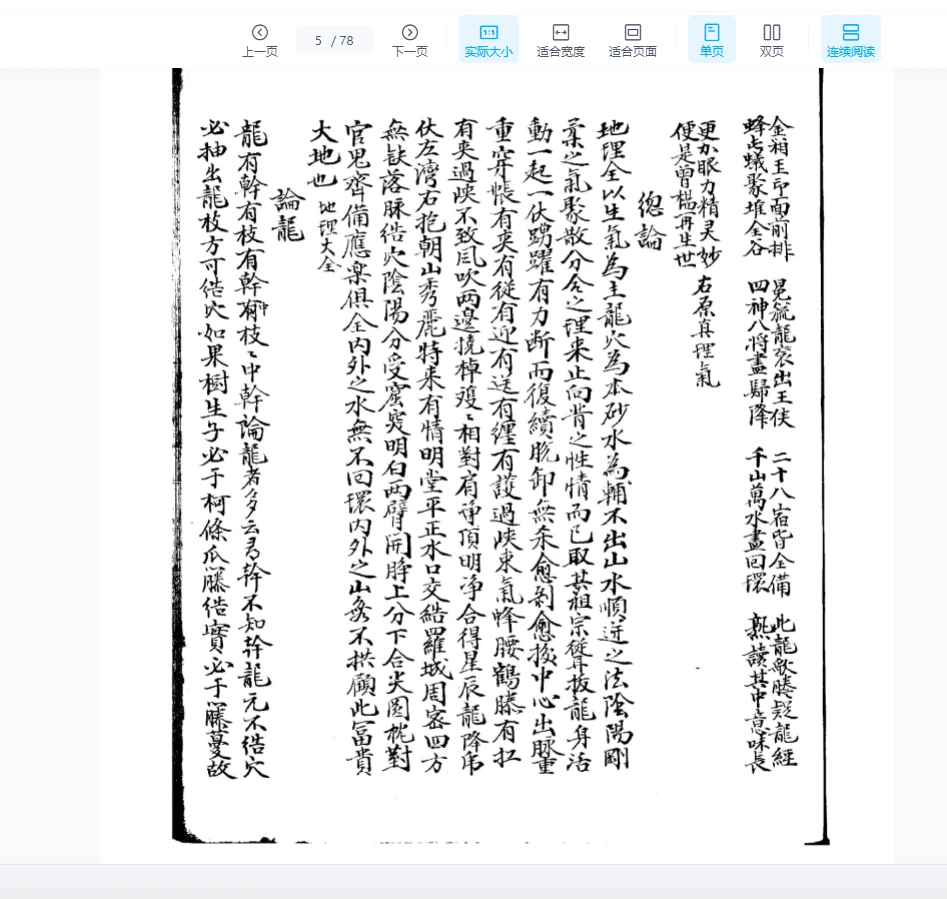 上一页
5 / 78
下一页
1:1
实际大小
适合宽度
适合页面
单页
双页
连续阅读
金箱玉印面前排 冕旒龍衮出王侯 二十八宿皆全備 此龍歌勝疑龍經
蜂屯蟻聚堆金谷 四神八將盡歸降 千山萬水盡回環 熟讀其中意味長
更加眼力精灵妙
便是曾楊再生世 右原真理氣
總論
地理全以生氣為主龍穴為本砂水為輔不出山水順逆之法陰陽剛
柔之氣聚散分合之理来止向背之性情而已取其祖宗從耸拔龍身活
動一起一伏踴躍有力断而復續脫卸無杀愈剝愈換中心出脈重
重穿帳有夾有從有迎有送有纏有護過峡束氣蜂腰鶴膝有扛
有夾過峡不致風吹两邊撓棹殘〻相對肩淨頂明淨合得星辰龍降虎
伏左湾右抱朝山秀麗特来有情明堂平正水口交結羅城周密四方
無缺落脉结穴陰陽分受窩突明白两臂開睁上分下合尖圆枕對
官鬼齊備應樂俱全内外之水無不回環内外之山無不拱顧此富貴
大地也 地理大全
論龍
龍有幹有枝有幹有枝〻中幹論龍者多云尋幹不知幹龍元不结穴
必抽出龍枝方可结穴如果樹生子必于柯條瓜藤结實必于藤蔓故